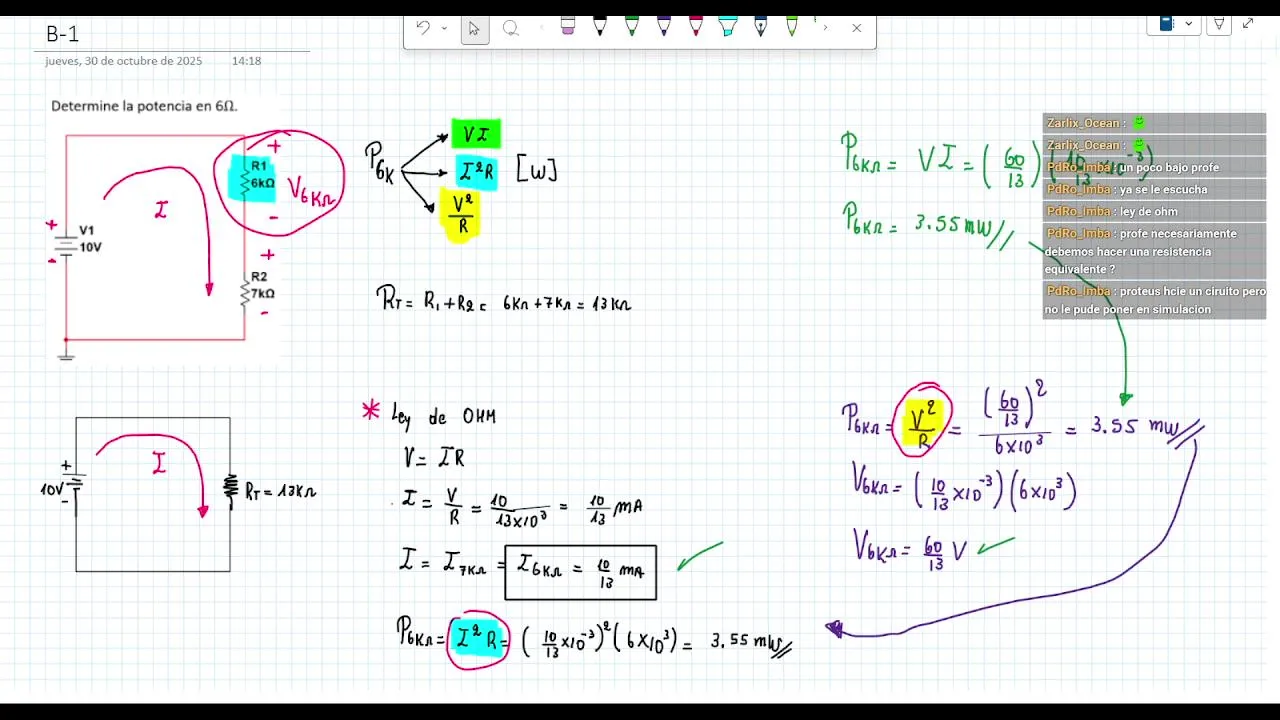 B-1
jueves, 30 de octubre de 2025 14:18
Determine la potencia en 6Ω.
R1
6kΩ
V6KΩ
+
-
I
+
-
V1
10V
+
-
R2
7kΩ
P6K
VI
I²R
V²/R
[W]
RT = R1 + R2 = 6KΩ + 7KΩ = 13KΩ
+
10V
-
I
RT = 13KΩ
* Ley de OHM
V = IR
I = V/R = 10/13×10³ = 10/13 mA
I = I7KΩ = I6KΩ = 10/13 mA
P6KΩ = I²R = (10/13×10⁻³)²(6×10³) = 3.55 mW
P6KΩ = VI = (60/13)(10/13×10⁻³)
P6KΩ = 3.55 mW
P6KΩ = V²/R = (60/13)²/6×10³ = 3.55 mW
V6KΩ = (10/13×10⁻³)(6×10³)
V6KΩ = 60/13 V
Zarlix_Ocean :
Zarlix_Ocean :
PdRo_Imba : un poco bajo profe
PdRo_Imba : ya se le escucha
PdRo_Imba : ley de ohm
PdRo_Imba : profe necesariamente
debemos hacer una resistencia
equivalente ?
PdRo_Imba : proteus hcie un ciruito pero
no le pude poner en simulacion